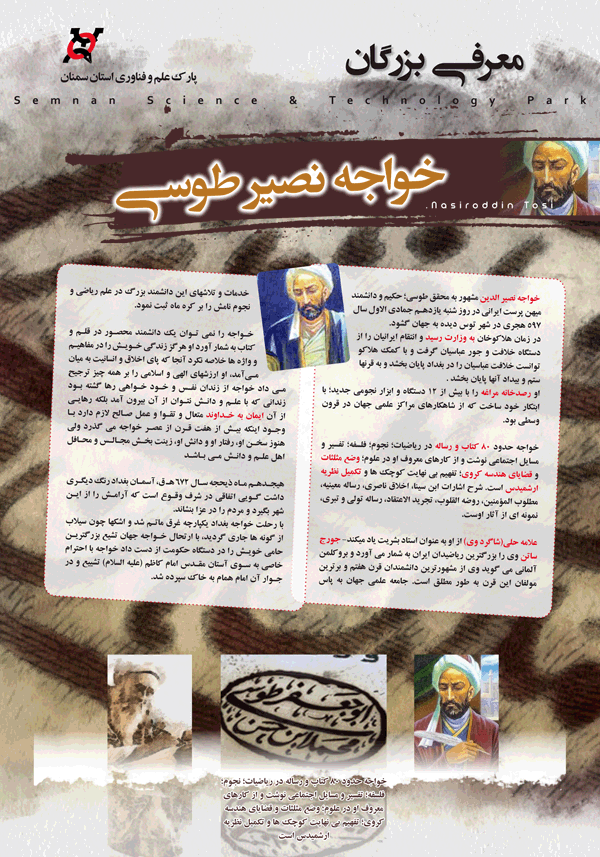 معرفی بزرگان
پارک علم و فناوری استان سمنان
Semnan Science & Technology Park
خواجه نصیر طوسی
Nasiroddin Tosi.
خواجه نصیر الدین مشهور به محقق طوسی؛ حکیم و دانشمند
میهن پرست ایرانی در روز شنبه یازدهم جمادی الاول سال
۵۹۷ هجری در شهر توس دیده به جهان گشود.
در زمان هلاکوخان به وزارت رسید و انتقام ایرانیان را از
دستگاه خلافت و جور عباسیان گرفت و با کمک هلاکو
توانست خلافت عباسیان را در بغداد پایان بخشد و به قرنها
ستم و بیداد آنها پایان بخشد .
او رصدخانه مراغه را با بیش از ۱۲ دستگاه و ابزار نجومی جدید؛ با
ابتکار خود ساخت که از شاهکارهای مراکز علمی جهان در قرون
وسطی بود.
خواجه حدود ۸۰ کتاب و رساله در ریاضیات؛ نجوم؛ فلسفه؛ تفسیر و
مسایل اجتماعی نوشت و از کارهای معروف او در علوم؛ وضع مثلثات
و قضایای هندسه کروی؛ تفهیم بی نهایت کوچک ها و تکمیل نظریه
ارشمیدس است. شرح اشارات ابن سینا، اخلاق ناصری، رساله معینیه،
مطلوب المؤمنین، روضه القلوب، تجرید الاعتقاد، رساله تولی و تبری،
نمونه ای از آثار اوست.
علامه حلی(شاگرد وی) از او به عنوان استاد بشریت یاد میکند- جورج
ساتن وی را بزرگترین ریاضیدان ایران به شمار می آورد و بروکلمن
آلمانی می گوید وی از مشهورترین دانشمندان قرن هفتم و برترین
مولفان این قرن به طور مطلق است. جامعه علمی جهان به پاس
خدمات و تلاشهای این دانشمند بزرگ در علم ریاضی و
نجوم نامش را بر کره ماه ثبت نمود.
خواجه را نمی توان یک دانشمند محصور در قلم و
کتاب به شمار آورد او هرگز زندگی خویش را در مفاهیم
و واژه ها خلاصه نکرد آنجا که پای اخلاق و انسانیت به میان
می‌آمد، او ارزشهای الهی و اسلامی را بر همه چیز ترجیح
می داد خواجه از زندان نفس و خود خواهی رها گشته بود
زندانی که با علم و دانش نتوان از آن بیرون آمد بلکه رهایی
از آن ایمان به خداوند متعال و تقوا و عمل صالح لازم دارد با
وجود اینکه بیش از هفت قرن از عصر خواجه می گذرد ولی
هنوز سخن او، رفتار او و دانش او، زینت بخش مجالس و محافل
اهل علم و دانش می باشد
هیجدهم ماه ذیحجه سال ۶۷۲ هـ.ق، آسمان بغداد رنگ دیگری
داشت گویی اتفاقی در شرف وقوع است که آرامش را از این
شهر بگیرد و مردم را در عزا بنشاند.
با رحلت خواجه بغداد یکپارچه غرق ماتم شد و اشکها چون سیلاب
از گونه ها جاری گردید، با ارتحال خواجه جهان تشیع بزرگترین
حامی خویش را در دستگاه حکومت از دست داد خواجه با احترام
خاصی به سوی آستان مقدس امام کاظم (علیه السلام) تشییع و در
جوار آن امام همام به خاک سپرده شد.
ابوجعفر طوسی
محمد ابن حسن
خواجه حدود ۸۰ کتاب و رساله در ریاضیات؛ نجوم؛
فلسفه؛ تفسیر و مسایل اجتماعی نوشت و از کارهای
معروف او در علوم؛ وضع مثلثات و قضایای هندسه
کروی؛ تفهیم بی نهایت کوچک ها و تکمیل نظریه
ارشمیدس است